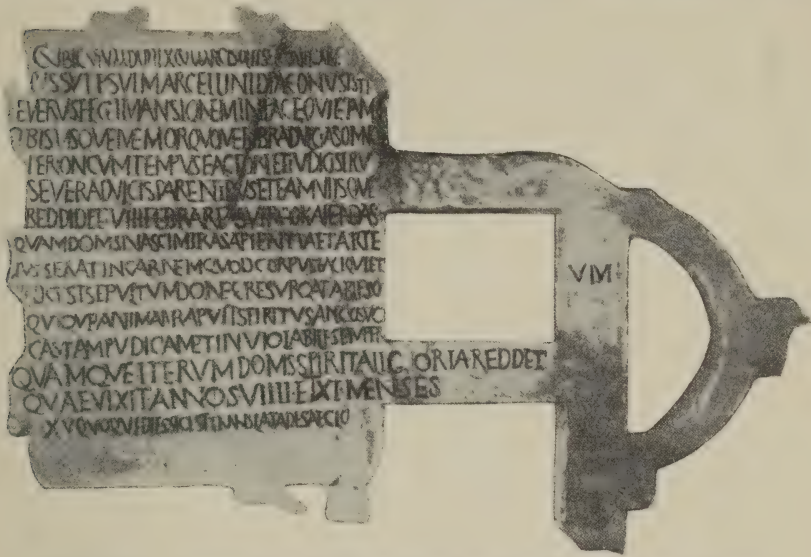 CVBICVLVM DVPLEX CVM ARCISOLIIS ET LVMINARE
IVSSV PP SVI MARCELLINI DIACONVS ISTE
EVERVS FECIT MANSIONEM IN PACE QVIETAM
IBI SVISQVE MEMOR QVO MEMBRA DVLCIA SOMN
PER LONGVM TEMPVS FACTORI ET IVDICI SERV
SEVERA DVLCIS PARENTIBVS ET FAMVLISQVE
REDDIDIT VIIII FEBRARIAS VIRGO KALENDAS
QVAM DOMS NASCI MIRA SAPIENTIA ET ARTE
IVSSERAT IN CARNEM QVOD CORPVS PACE QVIET
HIC EST SEPVLTVM DONEC RESVRGAT AB IPSO
QVIQVE ANIMA RAPVIT SPIRITV SANCTO SVO
CASTAM PVDICAM ET INVIOLABILE SEMPER
QVAMQVE ITERVM DOMS SPIRITALI G ORIA REDDET
QVAE VIXIT ANNOS VIIII ET XI MENSES
XV QVOQVE DIES SIC EST TRANSLATA DE SAECLO